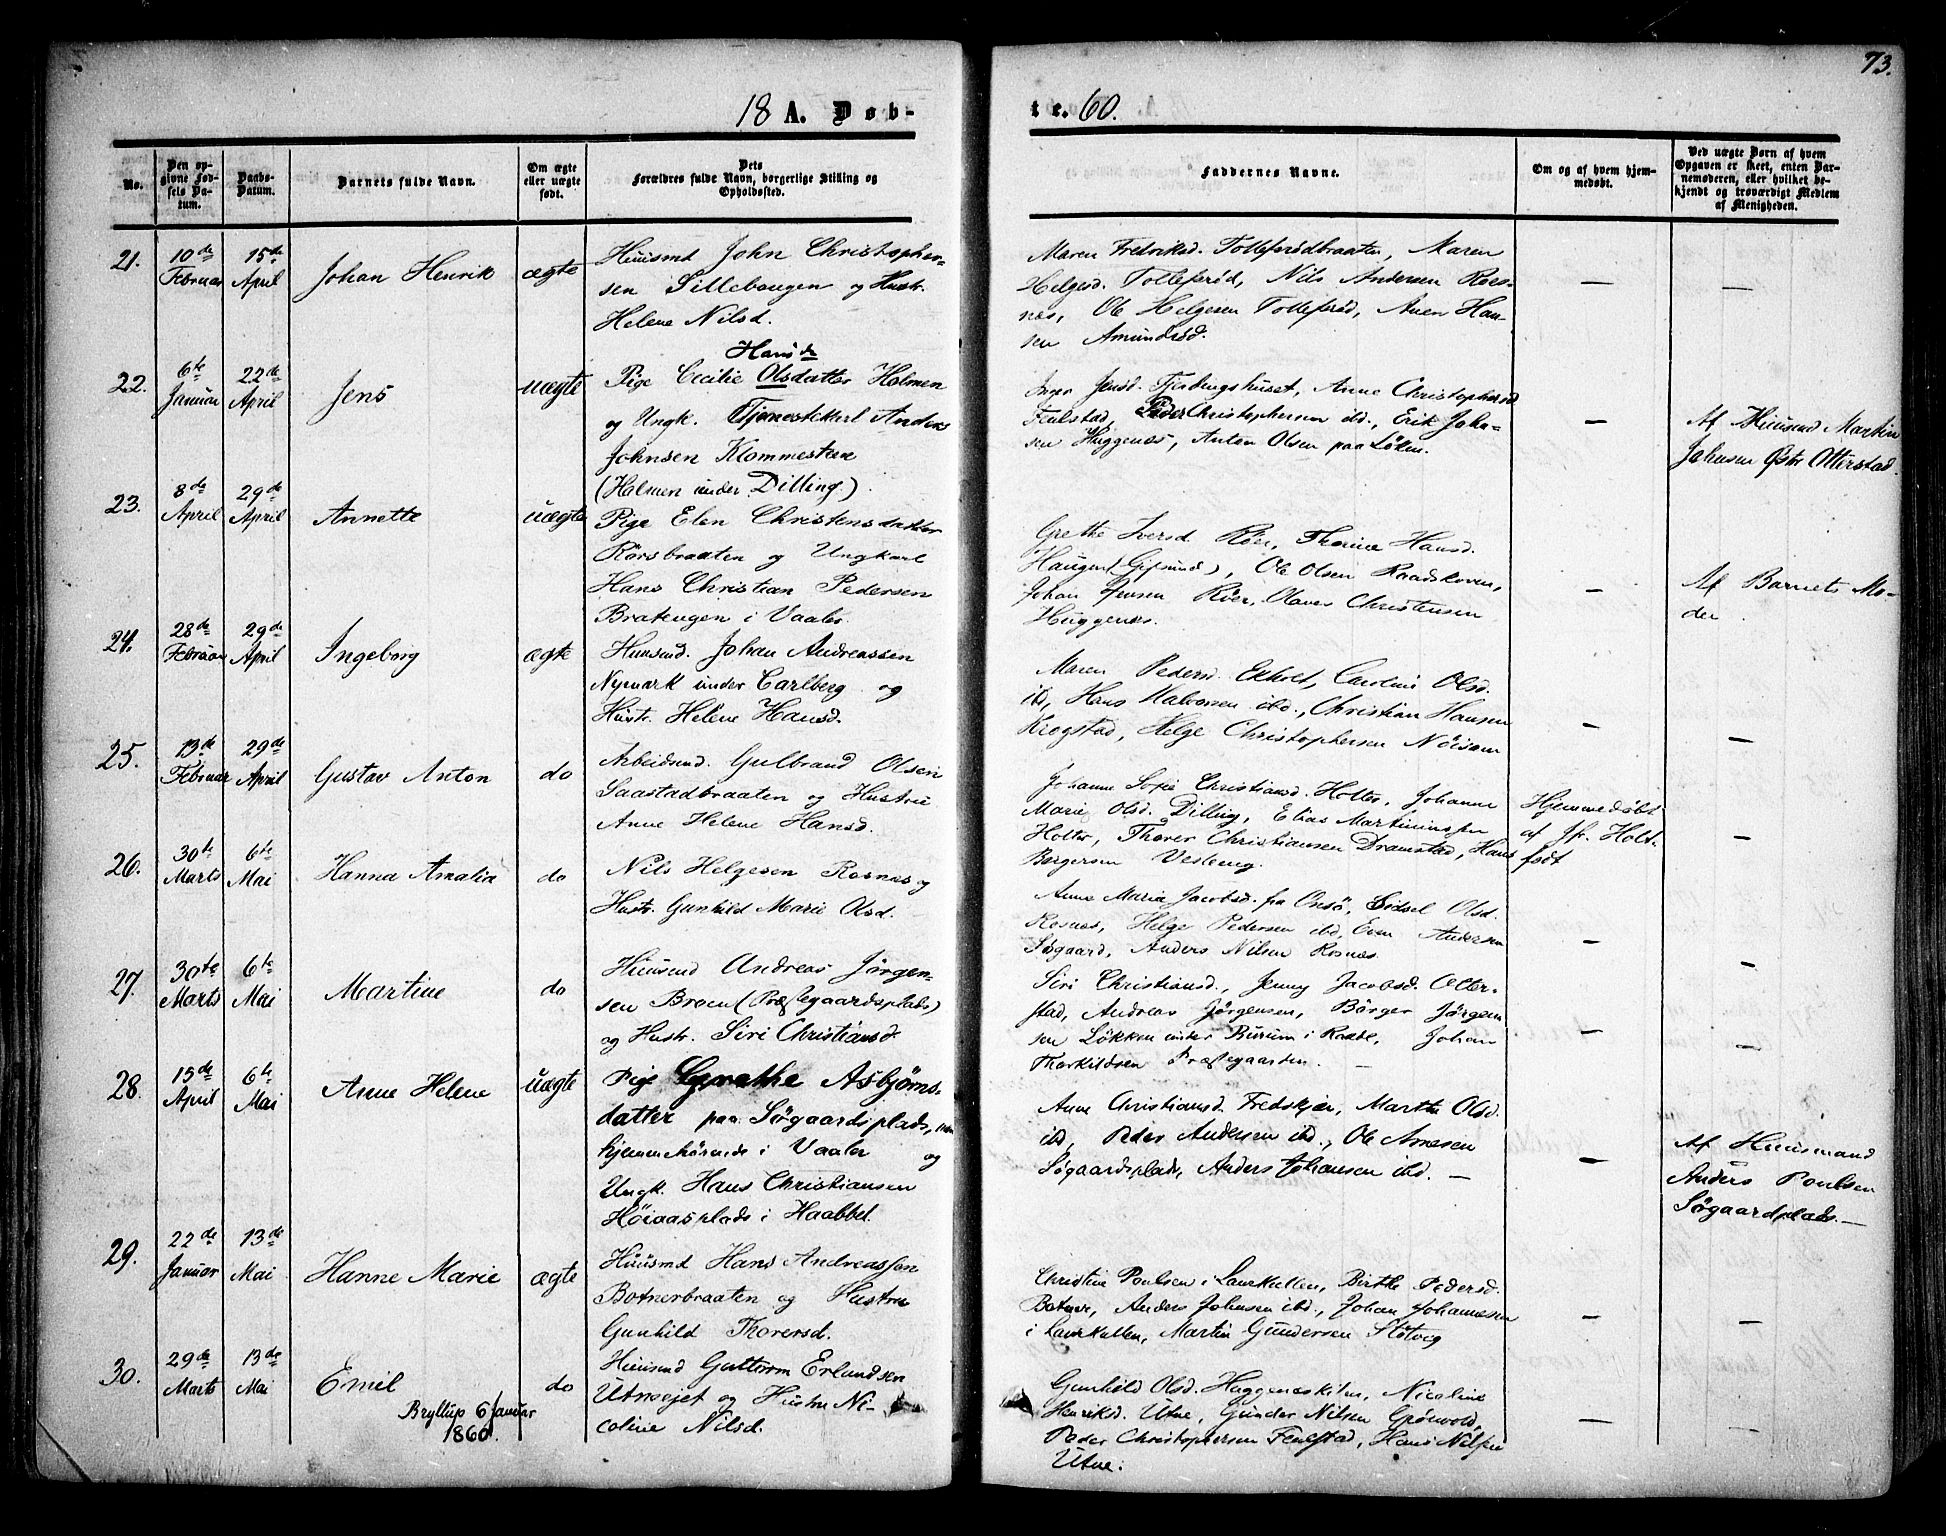 73.
18 A. Døb-
te. 60.
No.
Den op-
givne Fød-
sels Da-
tum.
Daabs-
Datum.
Barnets fulde Navn.
Om ægte
eller uægte
født.
Dets
Forældres fulde Navn, borgerlige Stilling og
Opholdssted.
Faddernes Navne.
Om og af hvem hjem-
medøbt.
Ved uægte Børn af hvem
Opgaven er skeet, enten Bar-
nemoderen, eller hvilket be-
kjendt og troværdigt Medlem
af Menigheden.
21.
10de
Februar
15de
April
Johan Henrik
ægte
Huusmd John Christopher-
sen Sillebaugen og Hustr.
Helene Nilsd.
Maren Fredriksd. Tollefsrødbraaten, Maren
Helgesd. Tollefsrød, Nils Andersen Ros-
næs, Ole Helgesen Tollefsrød, Auen Han-
sen Amundrød.
—
—
22.
6te
Januar
22de
April
Jens
uægte
Hansd.
Pige Cecilie Olsdatter Holmen
og Ungk. Tjenestekarl Anders
Johnsen Klommesteen
(Holmen under Dilling).
Inger Jensd. Fjerdingshuset, Anne Christophersd
Feulstad, Peder Christophersen ibd., Erik Johan-
sen Huggenæs, Anton Olsen paa Løken.
—
Af Huusmd Martin
Johnsen Østre Otterstad.
23.
8de
April
29de
April
Annette
uægte
Pige Elen Christensdatter
Rørsbraaten og Ungkarl
Hans Christian Pedersen
Bratengen i Vaaler.
Grethe Iversd Røer, Thorine Hansd.
Haugen (Gipsund), Ole Olsen Raadskoven,
Johan Jensen Røer, Olaves Christensen
Huggenæs.
—
Af Barnets Mo-
der.
24.
28de
Februar
29de
April
Ingeborg
ægte
Huusmd. Johan Andreassen
Nymark under Carlberg og
Hustr. Helene Hansd.
Maren Pedersd. Ekholt, Caroline Olsd.
ibd, Hans Halvorsen ibd., Christian Hansen
Krogstad, Helge Christophersen Nøisom
—
—
25.
13de
Februar
29de
April
Gustav Anton
do
Arbeidsmd. Gulbrand Olsen
Saastadbraaten og Hustrue
Anne Helene Hansd.
Johanne Sofie Christiansd. Holter, Johanne
Marie Olsd. Dilling, Elias Martiniussen
Holter, Thorer Christiansen Dramstad, Hans
Børgersen Vesleng.
Hjemmedøbt
af Jfr. Holt-
fodt
—
26.
30te
Marts
6te
Mai
Hanna Amalia
do
Nils Helgesen Rosnæs og
Hustr. Gunhild Marie Olsd.
Anne Maria Jacobsd. fra Onsø, Sidsel Olsd.
Rosnæs, Helge Pedersen ibd, Even Andersen
Søgaard, Anders Nilsen Rosnæs.
—
—
27.
30te
Marts
6te
Mai
Martine
do
Huusmd Andreas Jørgen-
sen Broen (Præstegaardsplads)
og Hustr. Siri Christiansd.
Siri Christiansd., Jenny Jacobsd. Otter-
stad, Andreas Jørgensen, Børger Jørgen-
sen Løkken under Burum i Raade, Johan
Thorkildsen Præstegaarden. —
—
—
28.
15de
April
6te
Mai
Anne Helene
uægte
Pige Grethe Asbjørns-
datter paa Søgaardsplads, men
hjemmehørende i Vaaler og
Ungk. Hans Christiansen
Høiaasplads i Haabbel.
Anne Christiansd. Fredskjær, Marthe Olsd.
ibd, Peder Andersen ibd., Ole Arnesen
Søgaardsplads, Anders Johansen ibd. —
—
Af Huusmand
Anders Poulsen
Søgaardplads. —
29.
22de
Januar
13de
Mai
Hanne Marie
ægte
Huusmd Hans Andreassen
Botnerbraaten og Hustru
Gunhild Thorersd.
Christine Poulsen i Laurkullen, Birthe Pedersd.
Botner, Anders Johnsen ibd., Johan Johannesen
i Laurkullen, Martin Gundersen Støtvig
—
—
30.
29de
Marts
13de
Mai
Emil
Bryllup 6 Januar
1860.
do
Huusmd Guttorm Erlandsen
Utnesejet og Hustru Ni-
coline Nilsd.
Gunhild Olsd. Huggenæskilen, Nicoline
Henriksd. Utne, Gunder Nilsen Grønvold,
Peder Christophersen Feulstad, Hans Nilsen
Utne.
—
—